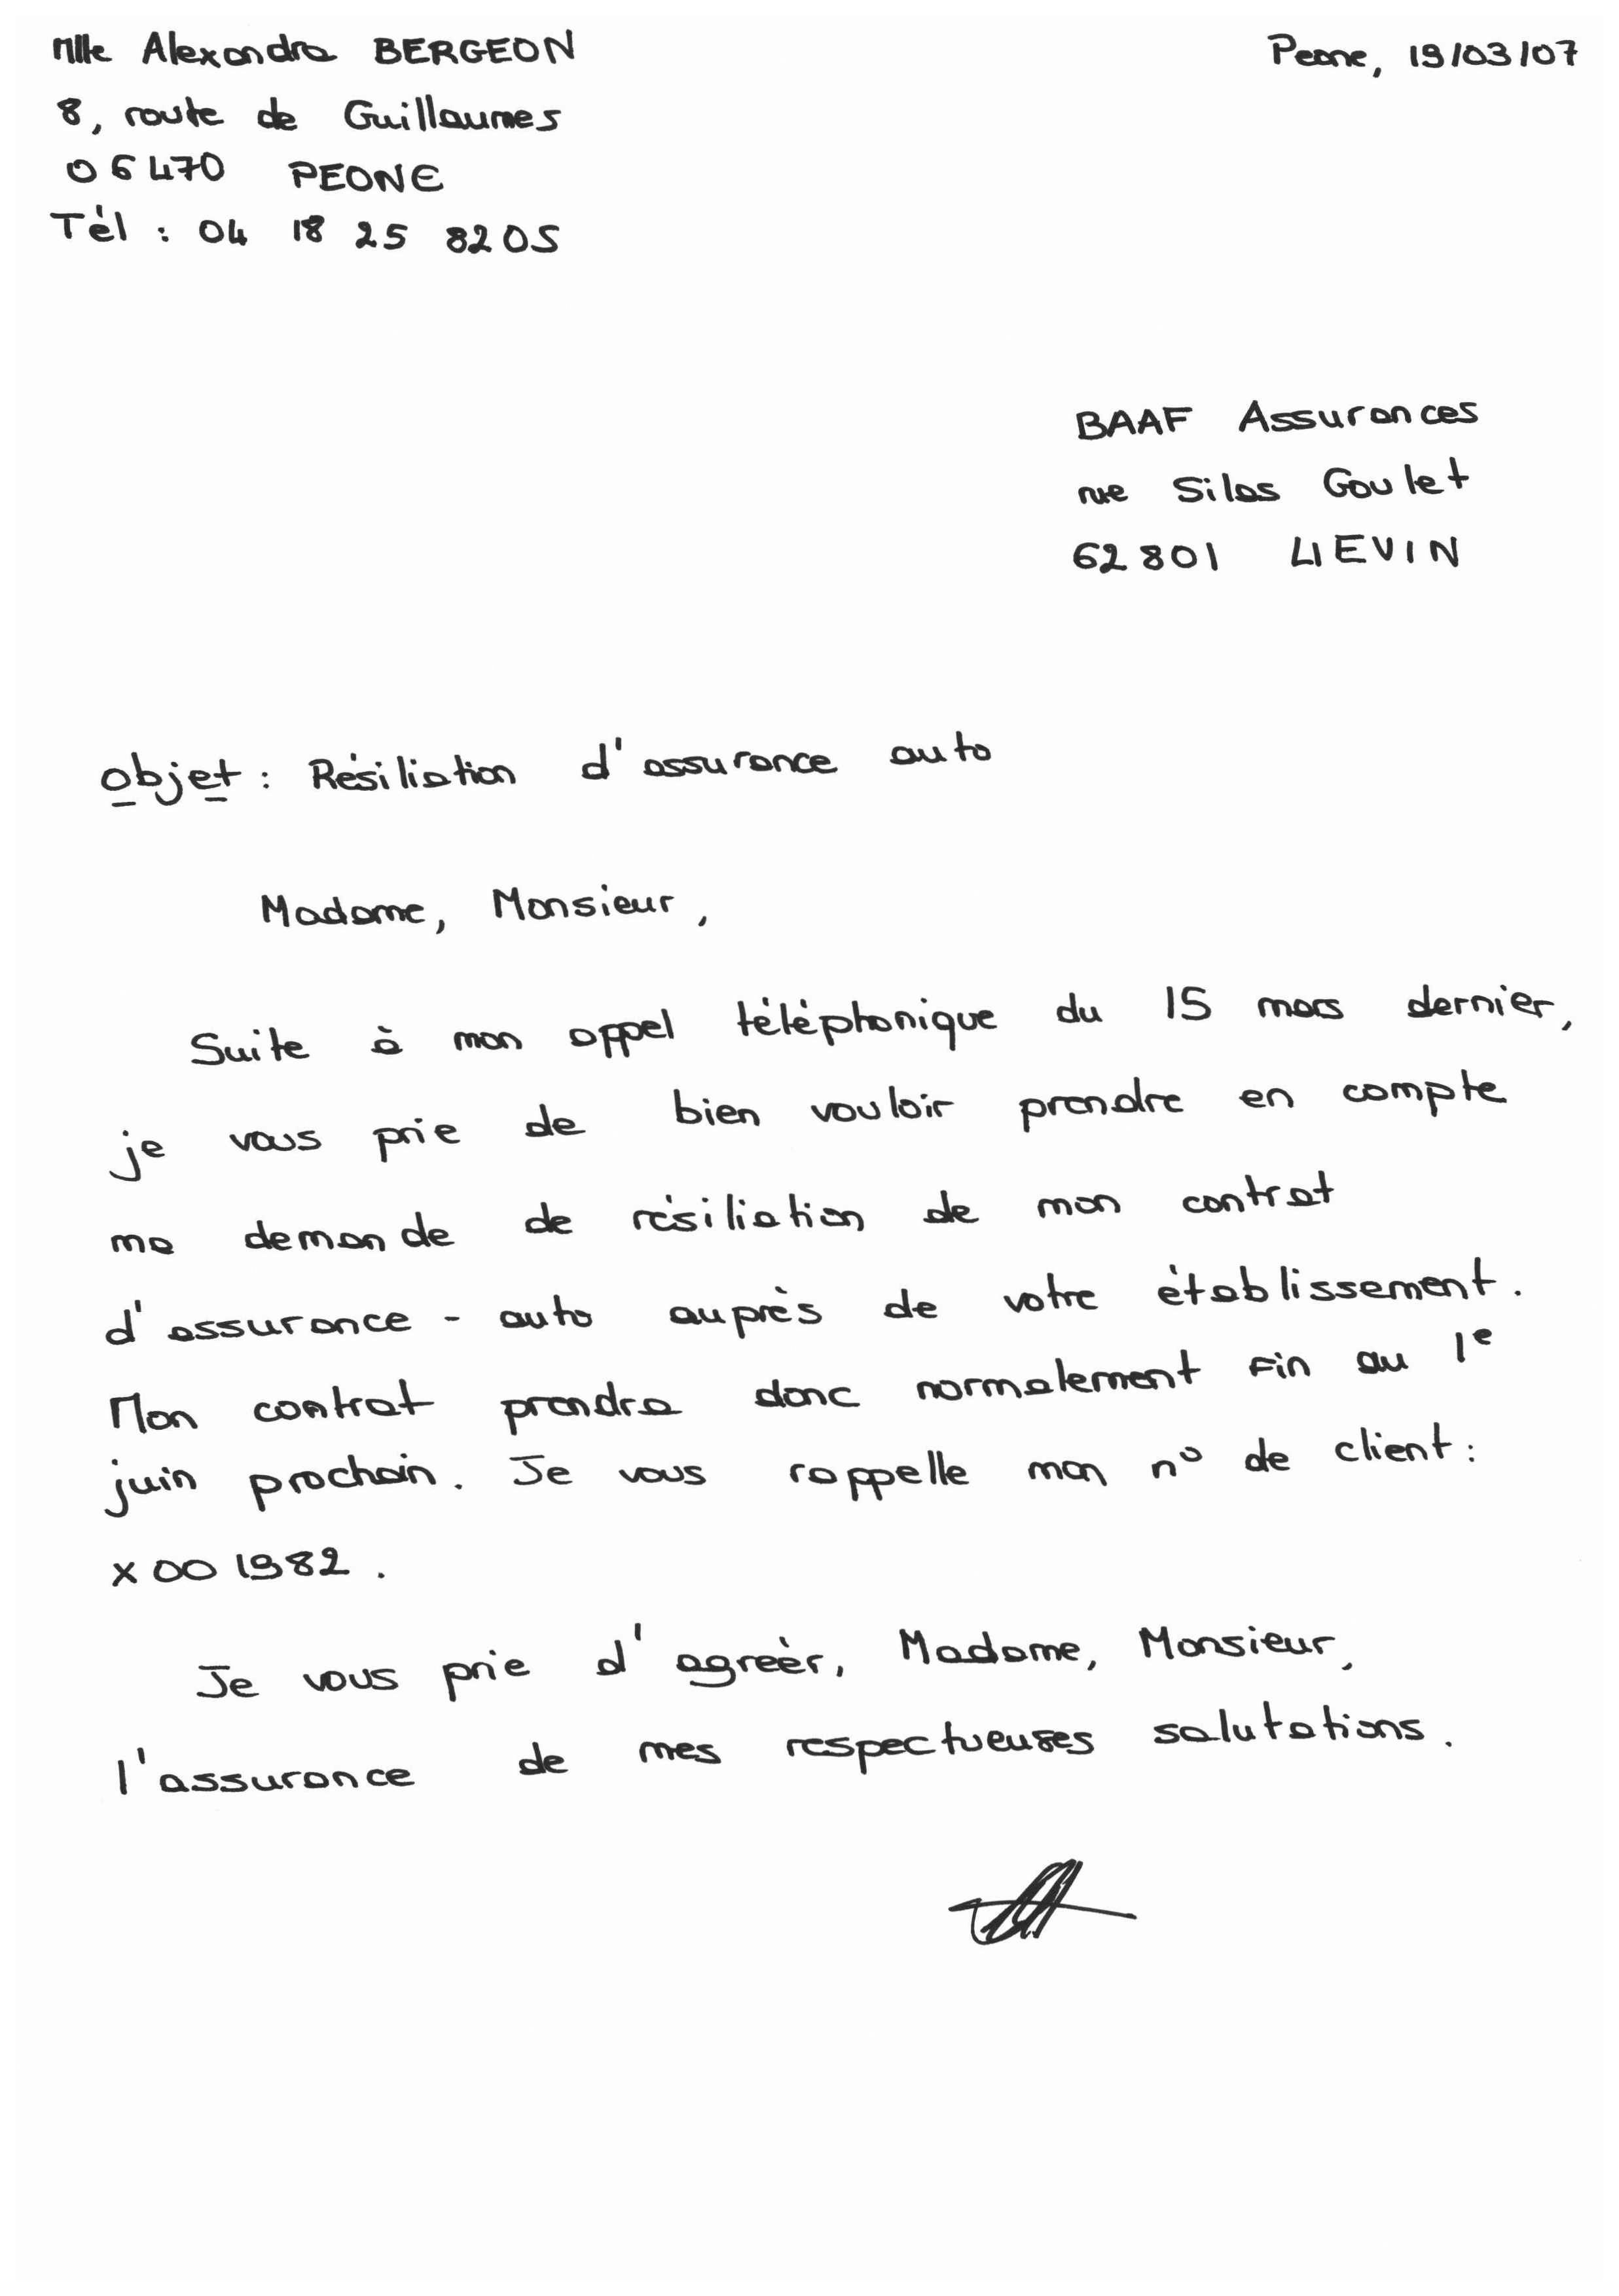 Mlle Alexandra BERGEON
Peone, 19/03/07
8, route de Guillaumes
06470 PEONE
Tél : 04 18 25 82 05
BAAF Assurances
rue Silas Goulet
62801 LIEVIN
Objet : Résiliation d'assurance auto
Madame, Monsieur,
Suite à mon appel téléphonique du 15 mars dernier,
je vous prie de bien vouloir prendre en compte
ma demande de résiliation de mon contrat
d'assurance - auto auprès de votre établissement.
Mon contrat prendra donc normalement fin au 1e
juin prochain. Je vous rappelle mon n° de client :
x001982.
Je vous prie d'agréer, Madame, Monsieur,
l'assurance de mes respectueuses salutations.